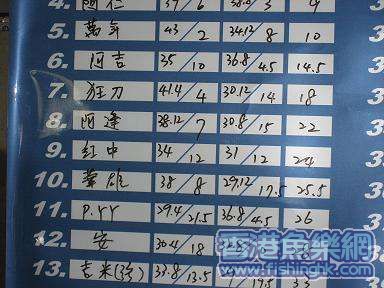 4. 阿仁 37/6 38.8/3 9
5. 萬年 43/2 34.12/8 10
6. 阿吉 35/10 36.8/4.5 14.5
7. 狂刀 41.4/4 30.12/14 18
8. 阿逢 38.12/7 30.8/15 22
9. 紅中 34/12 31/12 24
10. 雄 38/8 29.12/17.5 25.5
11. P.YY 29.4/21.5 36.8/4.5 26
12. 安 30.4/18
13. 吉米 33.8/13.5 19.5 33
香港魚樂網
www.fishinghk.com